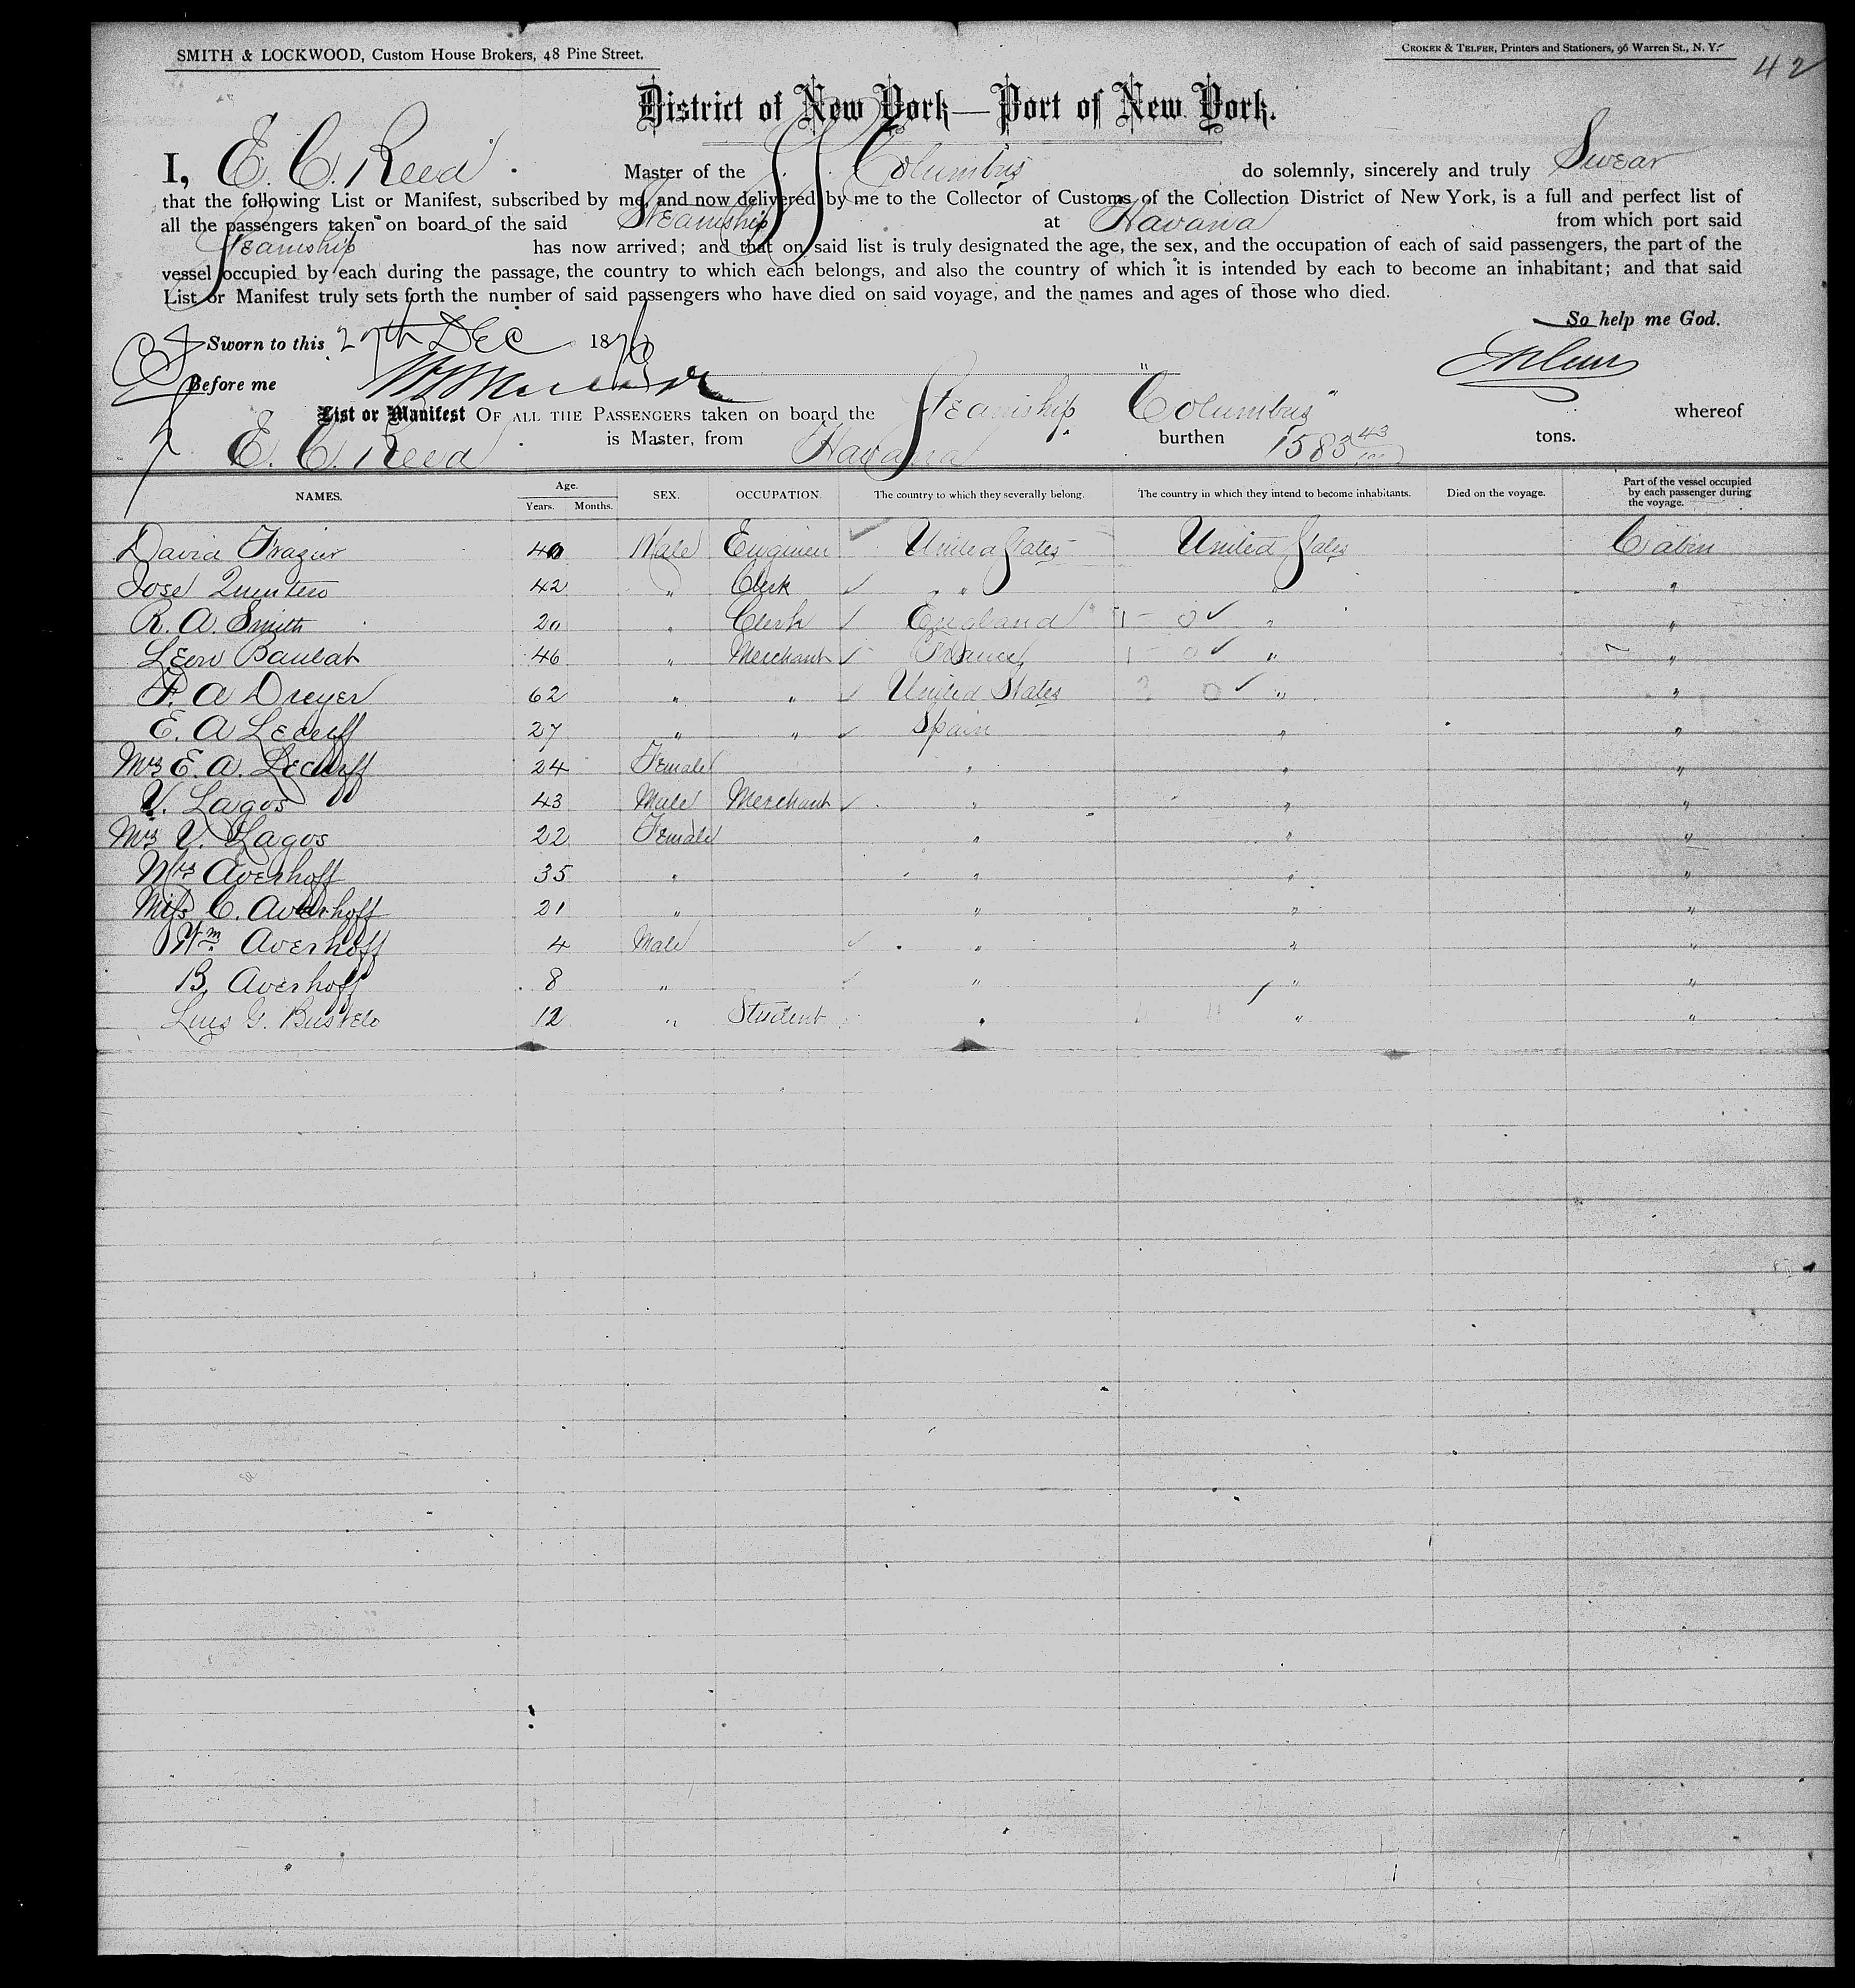 SMITH & LOCKWOOD, Custom House Brokers, 48 Pine Street.
CROKER & TELFER, Printers and Stationers, 96 Warren St., N. Y.
42
District of New York—Port of New York.
I, E. C. Reed Master of the SS Columbus do solemnly, sincerely and truly Swear
that the following List or Manifest, subscribed by me, and now delivered by me to the Collector of Customs of the Collection District of New York, is a full and perfect list of
all the passengers taken on board of the said Steamship at Havana from which port said
Steamship has now arrived; and that on said list is truly designated the age, the sex, and the occupation of each of said passengers, the part of the
vessel occupied by each during the passage, the country to which each belongs, and also the country of which it is intended by each to become an inhabitant; and that said
List or Manifest truly sets forth the number of said passengers who have died on said voyage, and the names and ages of those who died.
So help me God.
Sworn to this 27th Dec 1876
Before me
List or Manifest OF ALL THE PASSENGERS taken on board the Steamship "Columbus" whereof
E. C. Reed is Master, from Havana burthen 1583 43/100 tons.
NAMES. Age. Years. Months. SEX. OCCUPATION. The country to which they severally belong. The country in which they intend to become inhabitants. Died on the voyage. Part of the vessel occupied by each passenger during the voyage.
David Frazier 40 Male Engineer United States United States Cabin
Jose Quintero 42 " Clerk " " " "
R. A. Smith 20 " Clerk England " "
Leon Baulat 46 " Merchant France " "
F. A Dreyer 62 " " United States " "
E. A 27 " " Spain " "
Mrs E. A. 24 Female " " "
V. Lagos 43 Male Merchant " " "
Mrs V. Lagos 22 Female " " "
Mrs Averhoff 35 " " " "
Miss C. Averhoff 21 " " " "
Wm Averhoff 4 Male " " "
B. Averhoff 8 " " " "
Luis G. Bustelo 12 " Student " " "